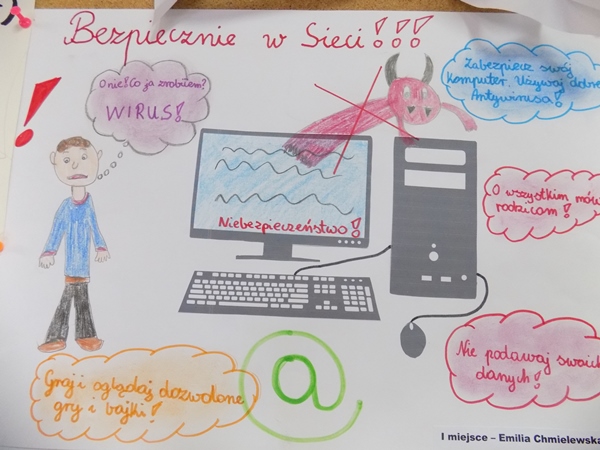 Bezpiecznie w Sieci!!!
O nie! Co ja zrobiłem?
WIRUS!
Zabezpiecz swój
Komputer. Używaj
Antywirusa!
Niebezpieczeństwo!
O wszystkim
rodzicom!
Nie podawaj
danych!
Graj i oglądaj dozwolone
gry i bajki!
@
I miejsce – Emilia Chmielewska